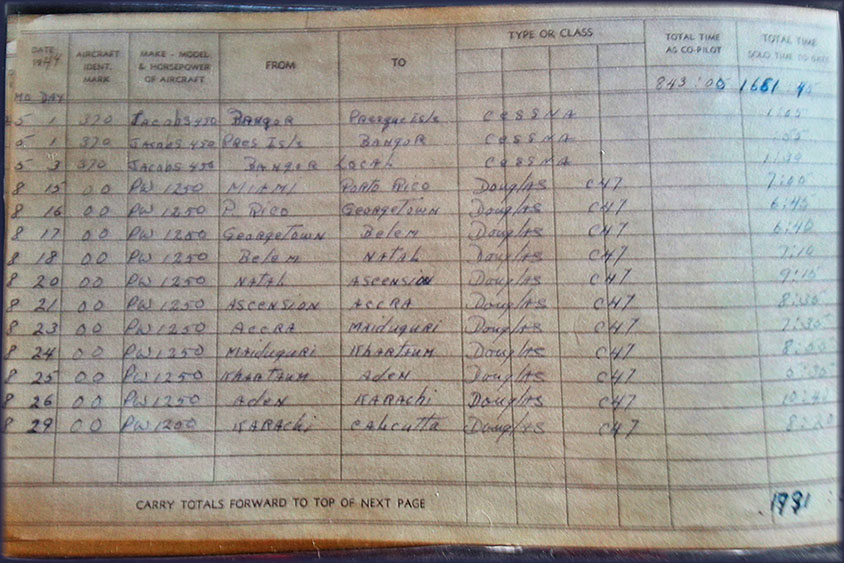 DATE 1944 AIRCRAFT IDENT. MARK MAKE - MODEL & HORSEPOWER OF AIRCRAFT FROM TO TYPE OR CLASS TOTAL TIME AS CO-PILOT TOTAL TIME SOLO TIME TO DATE
MO. DAY 843:05
5 1 370 Jacobs 450 Bangor Presque Isle CESSNA 1:05
5 1 370 Jacobs 450 Pres Isle Bangor CESSNA
5 3 370 Jacobs 450 Bangor Local CESSNA
8 15 00 PW 1250 MIAMI Porto Rico Douglas C47 7:00
8 16 00 PW 1250 P. Rico Georgetown Douglas C47 6:45
8 17 00 PW 1250 Georgetown Belem Douglas C47 6:40
8 18 00 PW 1250 Belem Natal Douglas C47 7:10
8 20 00 PW 1250 Natal ASCENSION Douglas C47 9:15
8 21 00 PW 1250 ASCENSION ACCRA Douglas C47 8:30
8 23 00 PW 1250 ACCRA Maiduguri Douglas C47
8 24 00 PW 1250 Maiduguri Khartoum Douglas C47
8 25 00 PW 1250 Khartoum Aden Douglas C47
8 26 00 PW 1250 Aden KARAchi Douglas C47 10:40
8 29 00 PW 1200 KARAchi Calicutta Douglas C47 8:20
CARRY TOTALS FORWARD TO TOP OF NEXT PAGE